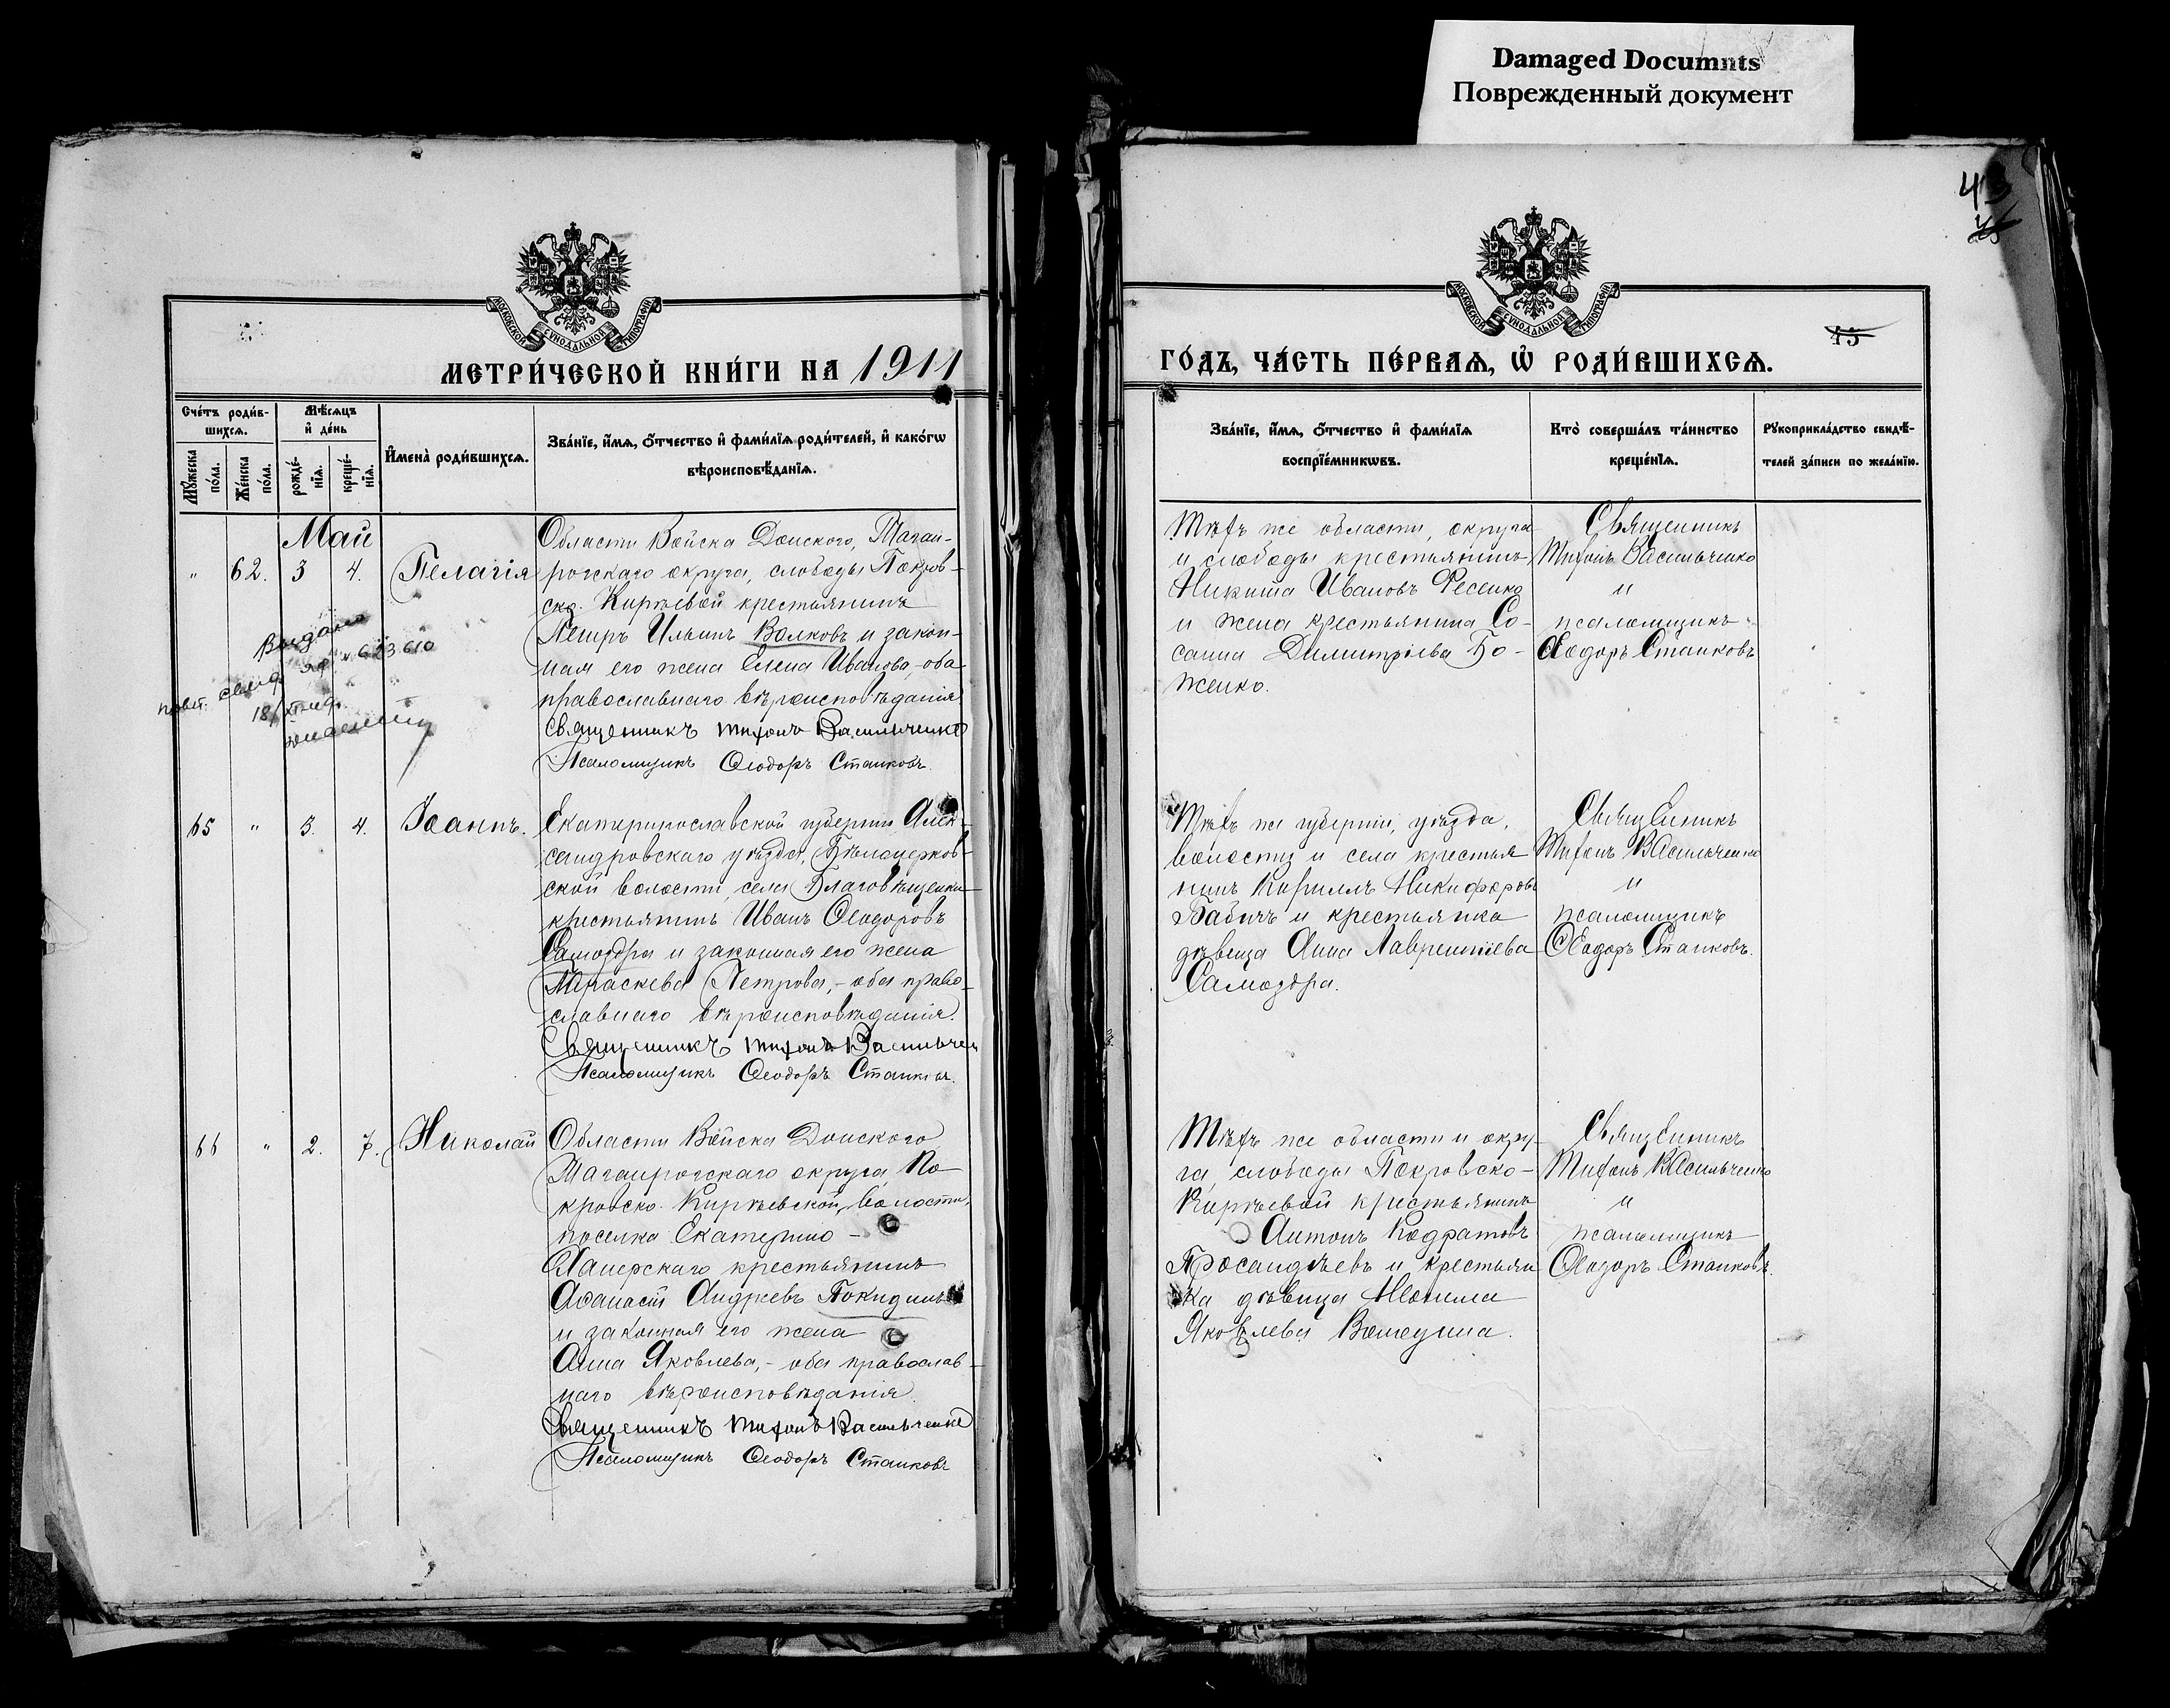 Damaged Documnts
Поврежденный документ
43
45
МОСКОВСКОЙ СѴНОДАЛЬНОЙ ТИПОГРАФІИ
МОСКОВСКОЙ СѴНОДАЛЬНОЙ ТИПОГРАФІИ
МЕТРИ́ЧЕСКОЙ КНИ́ГИ НА 1911
ГО́ДЪ, ЧА́СТЬ ПЕ́РВАѦ, Ѡ҆ РОДИ́ВШИХСѦ.
Сче́тъ роди́в-
шихсѧ.
Мѣ́сѧцъ
и҆ де́нь
И҆мена̀ роди́вшихсѧ.
Зва́нїе, и҆́мѧ, ѻ҆́тчество и҆ фами́лїѧ роди́телей, и҆ како́гѡ
вѣроисповѣ́данїѧ.
Мꙋ́жеска
по́ла.
Же́нска
по́ла.
рожде́-
нїѧ.
креще́-
нїѧ.
Зва́нїе, и҆́мѧ, ѻ҆́тчество и҆ фами́лїѧ
воспрїе́мникѡвъ.
Кто̀ соверша́лъ та́инство
креще́нїѧ.
Рꙋкоприкла́дство свидѣ́-
телей за́писи по жела́нїю.
Май
" 62. 3 4. Пелагія
Области Войска Донского, Таган-
рогскаго округа, слободы Покров-
ско-Кирѣевой крестьянинъ
Петръ Ильинъ Волковъ и закон-
ная его жена Елена Иванова,-оба
православнаго вѣроисповѣданія
Священникъ Тихонъ Васильченко
Псаломщикъ Ѳеодоръ Станковъ.
Выдано
повт. свид. 623610
18/
Тѣхъ же области, округа
и слободы крестьянинъ
Никита Ивановъ Фесенко
и жена крестьянина Со-
санна Димитріева Бо-
женко.
Священникъ
Тихонъ Васильченко
и
псаломщикъ
Ѳеодоръ Станковъ
65 " 3. 4. Іоаннъ.
Екатеринославской губерніи, Алек-
сандровскаго уѣзда, Бѣлоцерков-
ской волости, села Благовѣщенки
крестьянинъ Иванъ Ѳеодоровъ
Самодра и законная его жена
Параскева Петрова,-оба право-
славнаго вѣроисповѣданія.
Священникъ Тихонъ Васильчен
Псаломщикъ Ѳеодоръ Станковъ.
Тѣхъ же губерніи, уѣзда,
волости и села крестья
нинъ Кириллъ Никифоровъ
Бабичъ и крестьянка
дѣвица Анна Лаврентіева
Самодра.
Священникъ
Тихонъ Васильченко
и
псаломщикъ
Ѳеодоръ Станковъ.
66 " 2. 7. Николай
Области Войска Донского
Таганрогскаго округа, По-
кровско-Кирѣевской волости,
поселка Екатерино-
крестьянинъ
Аѳанасій Андреевъ Покидинъ
и законная его жена
Анна Яковлева,-оба православ-
наго вѣроисповѣданія
Священникъ Тихонъ Васильченко
Псаломщикъ Ѳеодоръ Станковъ
Тѣхъ же области и окру-
га, слободы Покровско-
Кирѣевой крестьянинъ
Антонъ Кодратовъ
и крестьян
ка дѣвица
Яковлева
Священникъ
Тихонъ Васильченко
и
псаломщикъ
Ѳеодоръ Станковъ.